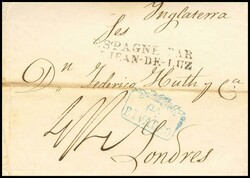 Inglaterra
Ses
ESPAGNE PAR
ST JEAN-DE-LUZ
Dn Federico Huth y Ca
Londres